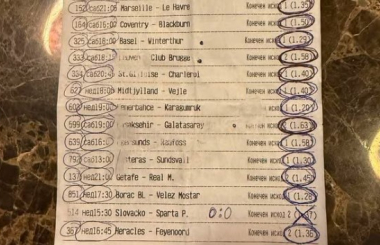 152 саб21:00 Marseille - Le Havre Конечен исход 1 (1.35)
164 саб16:00 Coventry - Blackburn Конечен исход 1 (1.50)
325 саб18:00 Basel - Winterthur Конечен исход 1 (1.29)
333 саб18:1 Club Brugge Конечен исход 2 (1.58)
334 саб20:4 St.Gilloise - Charleroi Конечен исход 1 (1.40)
627 нед18:00 Midtjylland - Vejle Конечен исход 1 (1.40)
602 нед19:00 - Karagumruk Конечен исход 1 (1.20)
599 саб19:00 - Galatasaray Конечен исход (1.63)
639 саб16:00 Конечен исход 1 (1.58)
793 саб13:00 - Sundsvall Конечен исход 1 (1.30)
137 нед21:00 Getafe - Real M. Конечен исход 2 (1.45)
851 нед17:30 Borac BL - Velez Mostar Конечен исход 1 (1.28)
514 нед15:30 Slovacko - Sparta P. 0:0 Конечен исход 2
367 нед16:45 Heracles - Feyenoord Конечен исход 2 (1.36)